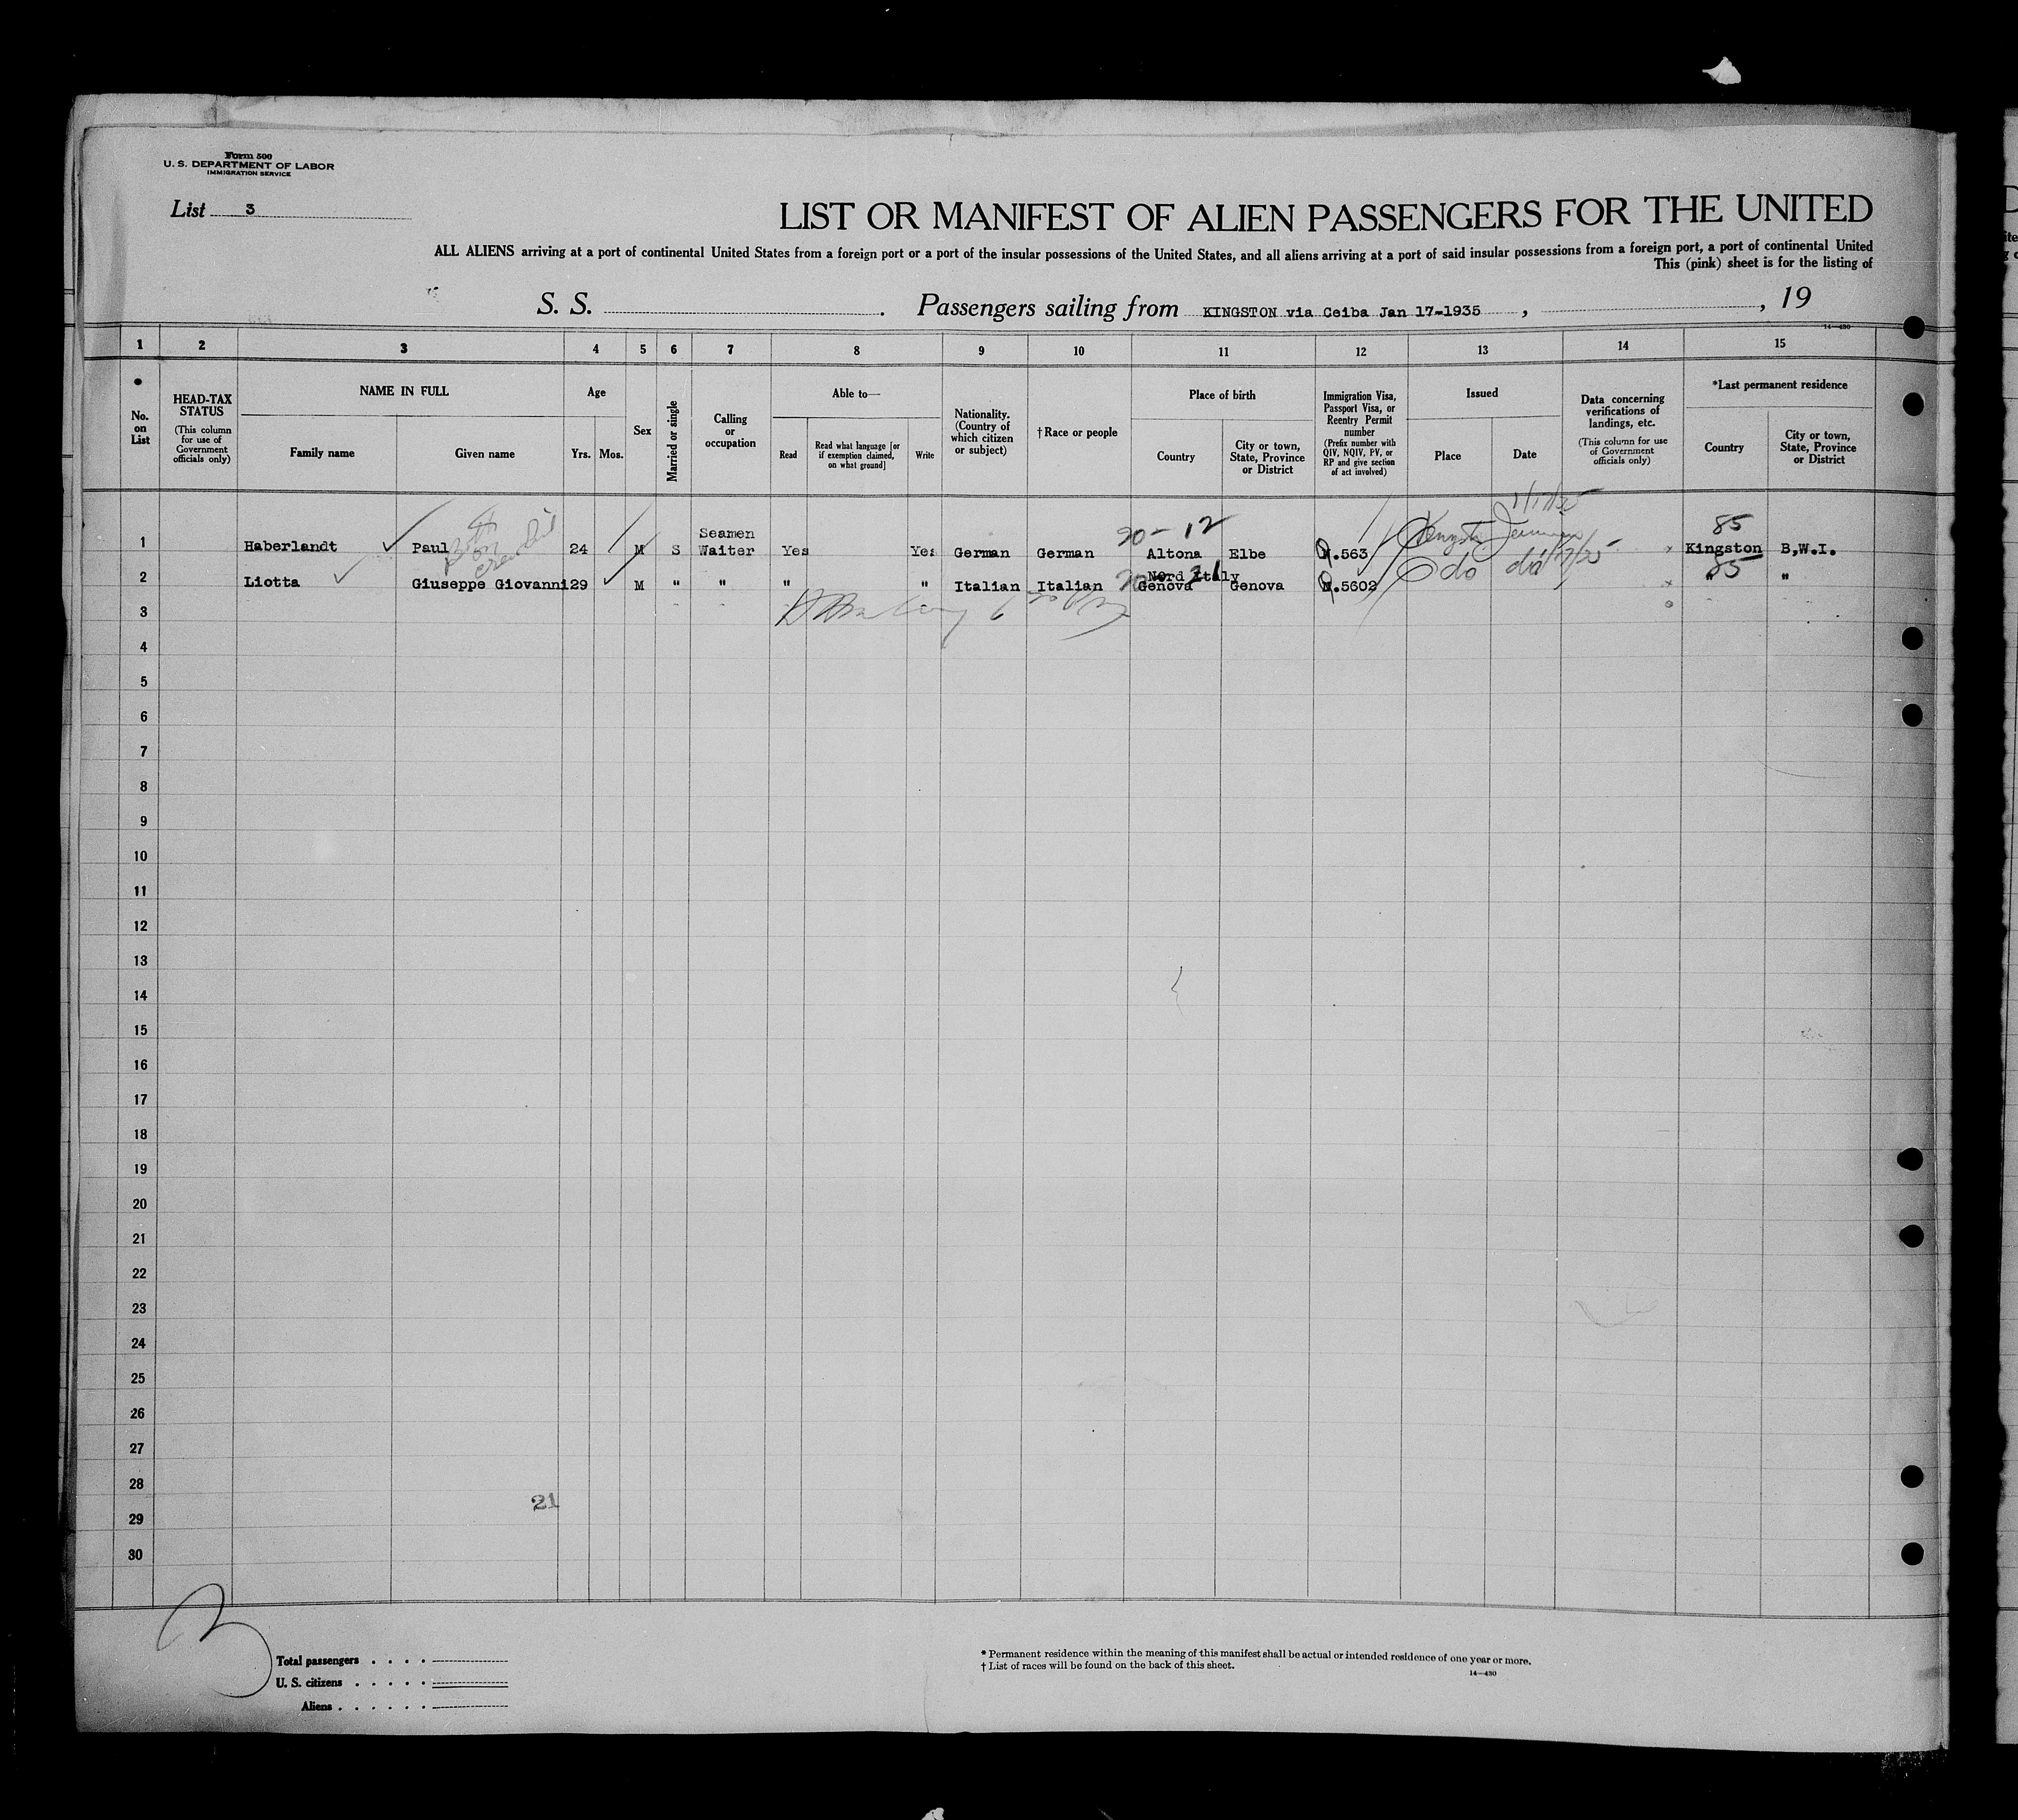 Form 500
U. S. DEPARTMENT OF LABOR
IMMIGRATION SERVICE
List 3
LIST OR MANIFEST OF ALIEN PASSENGERS FOR THE UNITED
ALL ALIENS arriving at a port of continental United States from a foreign port or a port of the insular possessions of the United States, and all aliens arriving at a port of said insular possessions from a foreign port, a port of continental United
This (pink) sheet is for the listing of
S. S. . Passengers sailing from KINGSTON via Ceiba Jan 17-1935 , , 19
14—430
1 2 3 4 5 6 7 8 9 10 11 12 13 14 15
No. on List
HEAD-TAX STATUS (This column for use of Government officials only)
NAME IN FULL
Family name Given name
Age
Yrs. Mos.
Sex
Married or single
Calling or occupation
Able to—
Read Read what language [or if exemption claimed, on what ground] Write
Nationality. (Country of which citizen or subject)
†Race or people
Place of birth
Country City or town, State, Province or District
Immigration Visa, Passport Visa, or Reentry Permit number (Prefix number with QIV, NQIV, PV, or RP and give section of act involved)
Issued
Place Date
Data concerning verifications of landings, etc. (This column for use of Government officials only)
*Last permanent residence
Country City or town, State, Province or District
1/17/35
20-12 85
1 Haberlandt Paul 24 M S Seamen Waiter Yes Yes German German Altona Elbe .563 Kingston B,W.I.
2 Liotta Giuseppe Giovanni 29 M " " " " Italian Italian Nord Italy Genova Genova .5602 do do 85 " "
3
4
5
6
7
8
9
10
11
12
13
14
15
16
17
18
19
20
21
22
23
24
25
26
27
28
21
29
30
3
Total passengers
U. S. citizens
Aliens
* Permanent residence within the meaning of this manifest shall be actual or intended residence of one year or more.
† List of races will be found on the back of this sheet.
14—430